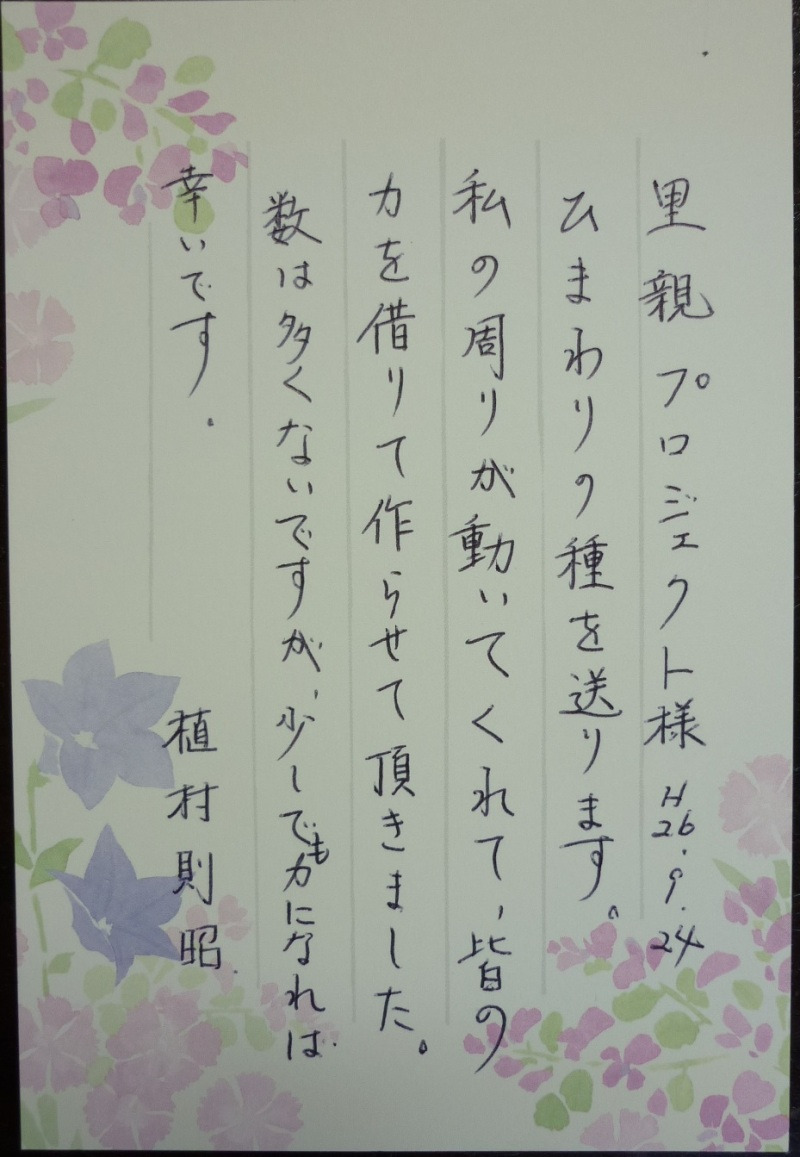 里親プロジェクト様 H26.9.24
ひまわりの種を送ります。
私の周りが動いてくれて、皆の
力を借りて作らせて頂きました。
数は多くないですが、少しでも力になれば
幸いです。
植村則昭